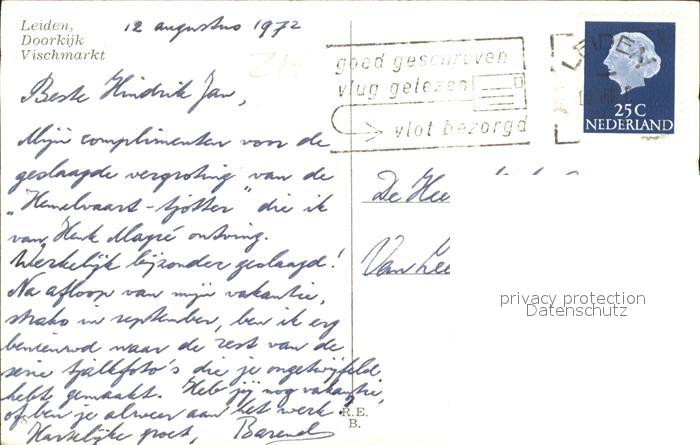 Leiden,
Doorkijk
Vischmarkt
12 augustus 1972
Beste Hindrik Jan,
Mijn complimenten voor de
geslaagde vergroting van de
"Hemelvaart-tjotter" die ik
van Henk Magré ontving.
Werkelijk bijzonder geslaagd!
Na afloop van mijn vakantie,
straks in september, ben ik erg
benieuwd naar de rest van de
serie tjalkfoto's die je ongetwijfeld
hebt gemaakt. Heb jij nog vakantie,
of ben je alweer aan het werk?
Hartelijke groet, Barend
R.E.
B.
goed geschreven
vlug gelezen
vlot bezorgd
LEIDEN
25C
NEDERLAND
De Hee
Van Lee
privacy protection
Datenschutz